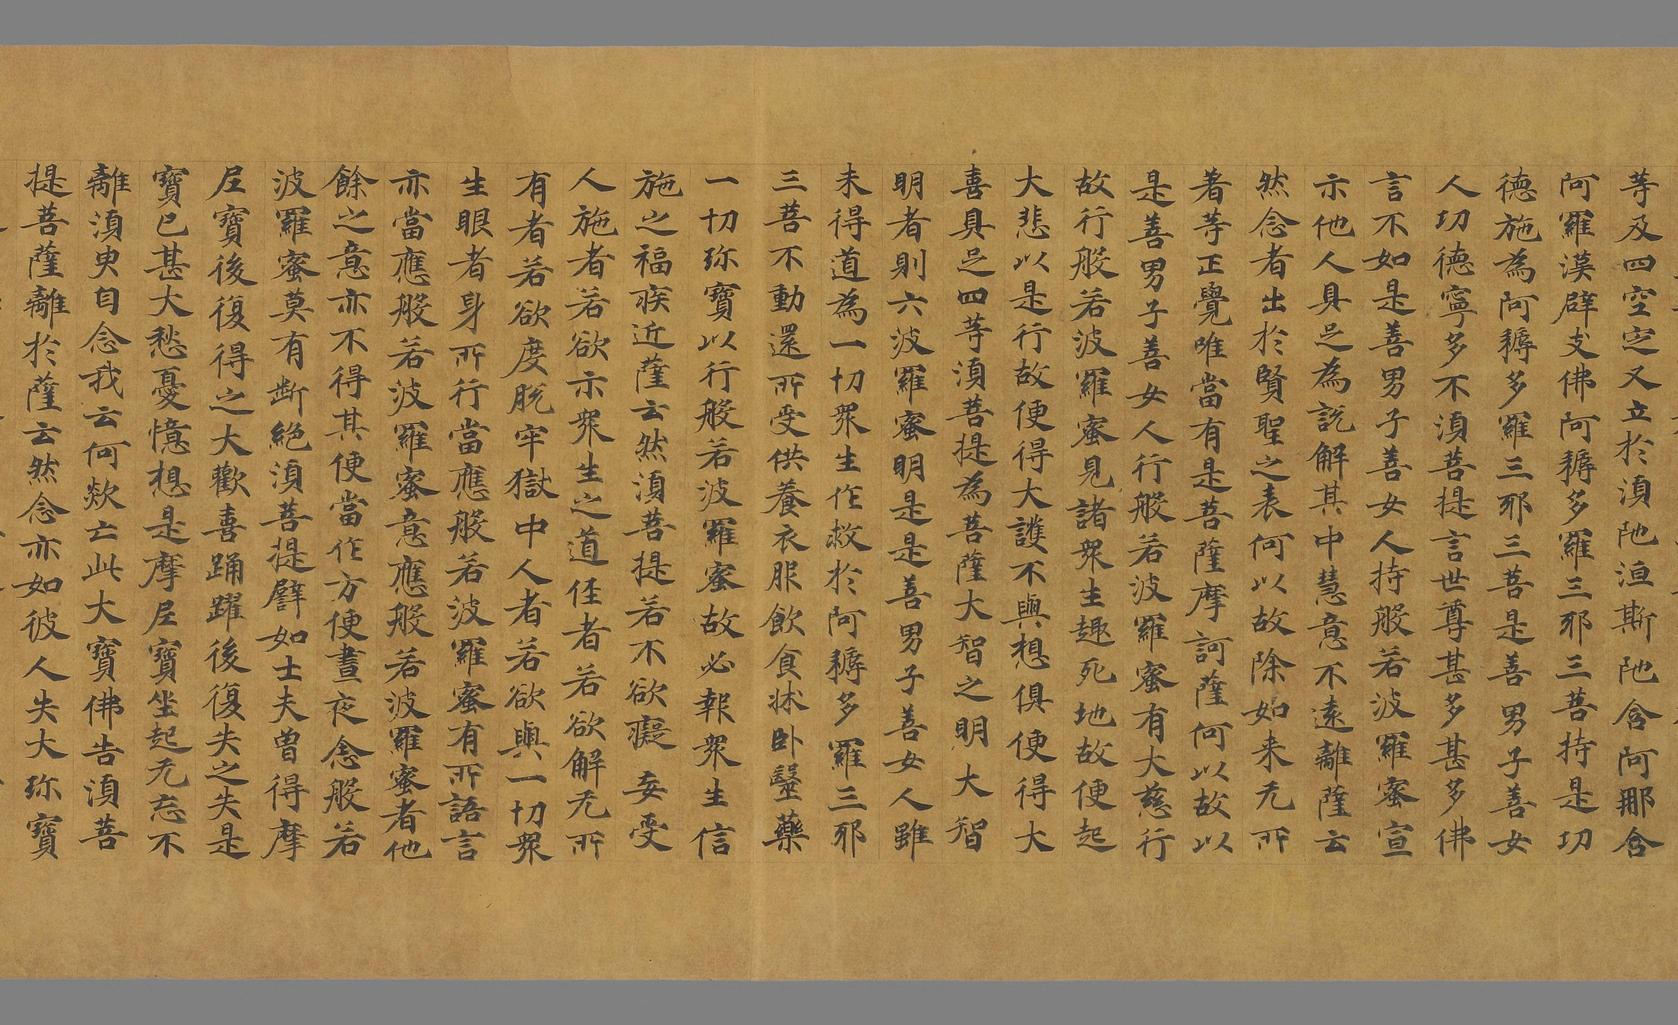 等及四空定又立於湏陁洹斯陁含阿那含
阿羅漢辟支佛阿耨多羅三耶三菩持是功
德施為阿耨多羅三耶三菩是善男子善女
人功德寧多不湏菩提言世尊甚多甚多佛
言不如是善男子善女人持般若波羅蜜宣
示他人具足為說解其中慧意不遠離薩云
然念者出於賢聖之表何以故除如来无所
著等正覺唯當有是菩薩摩訶薩何以故以
是善男子善女人行般若波羅蜜有大慈行
故行般若波羅蜜見諸衆生趣死地故便起
大悲以是行故便得大護不與想俱便得大
喜具足四等湏菩提為菩薩大智之明大智
明者則六波羅蜜明是是善男子善女人雖
未得道為一切衆生作救於阿耨多羅三耶
三菩不動還所受供養衣服飲食牀卧毉藥
一切珎寶以行般若波羅蜜故必報衆生信
施之福疾近薩云然湏菩提若不欲癡妄受
人施者若欲示衆生之道侄者若欲解无所
有者若欲度脫牢獄中人者若欲與一切衆
生眼者身所行當應般若波羅蜜有所語言
亦當應般若波羅蜜意應般若波羅蜜者他
餘之意亦不得其便當作方便晝夜念般若
波羅蜜莫有断絕湏菩提譬如士夫曾得摩
尼寶後復得之大歡喜踊躍後復失之失是
寶已甚大愁憂憶想是摩尼寶坐起无忘不
離湏臾自念我云何欻亡此大寶佛告湏菩
提菩薩離於薩云然念亦如彼人失大珎寶